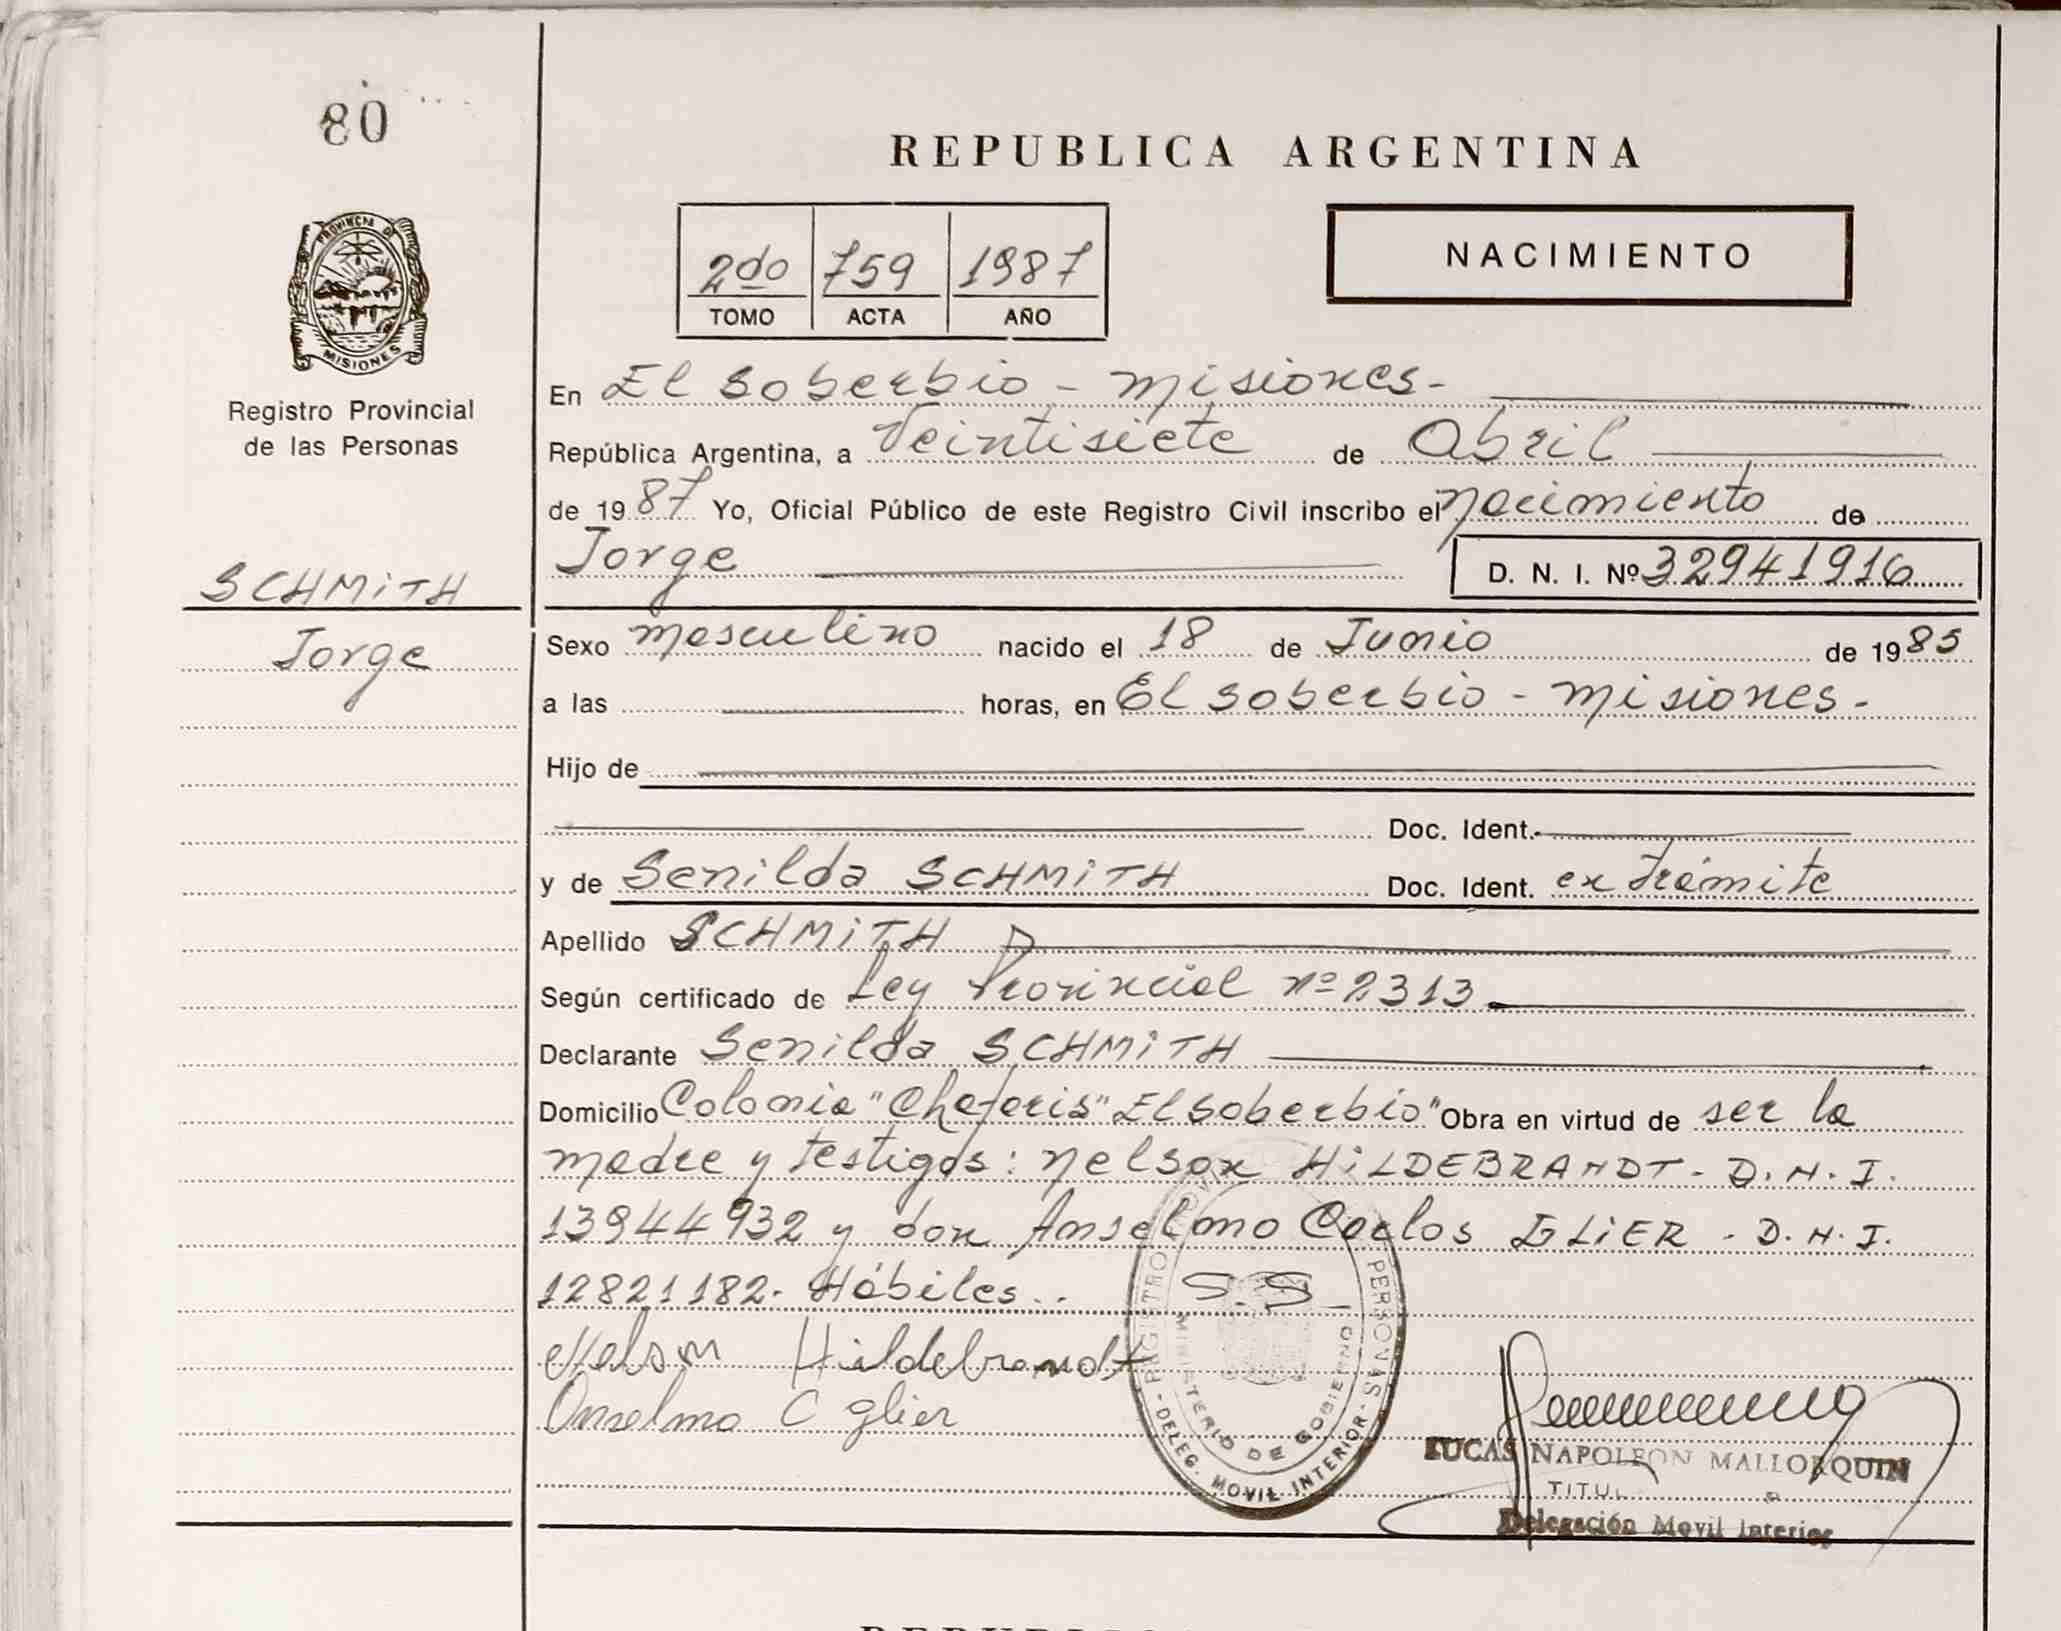 80
REPUBLICA ARGENTINA
2do 759 1987
TOMO ACTA AÑO
NACIMIENTO
PROVINCIA DE
MISIONES
Registro Provincial
de las Personas
En El Soberbio - Misiones -
República Argentina, a Veintisiete de Abril
de 1987 Yo, Oficial Público de este Registro Civil inscribo el nacimiento de
Jorge D. N. I. Nº 32941916
SCHMiTH
Jorge
Sexo masculino nacido el 18 de Junio de 1985
a las horas, en El Soberbio - Misiones -
Hijo de
Doc. Ident.
y de Senilda SCHMiTH Doc. Ident. en trámite
Apellido SCHMiTH
Según certificado de Ley Provincial nº 2313
Declarante Senilda SCHMiTH
Domicilio Colonia "Chafaris" El Soberbio" Obra en virtud de ser la
madre y testigos: Nelson HiLDEBRANDT - D.N.I.
13944932 y don Anselmo Carlos GLiER - D.N.I.
12821182. Hábiles.. S.S.
Nelson Hildebrandt
Anselmo C glier
REGISTRO PERSONAS
MINISTERIO DE GOBIERNO
- DELEG. MOVIL INTERIOR -
LUCAS NAPOLEON MALLORQUIN
TITUL
Delegación Movil Interior